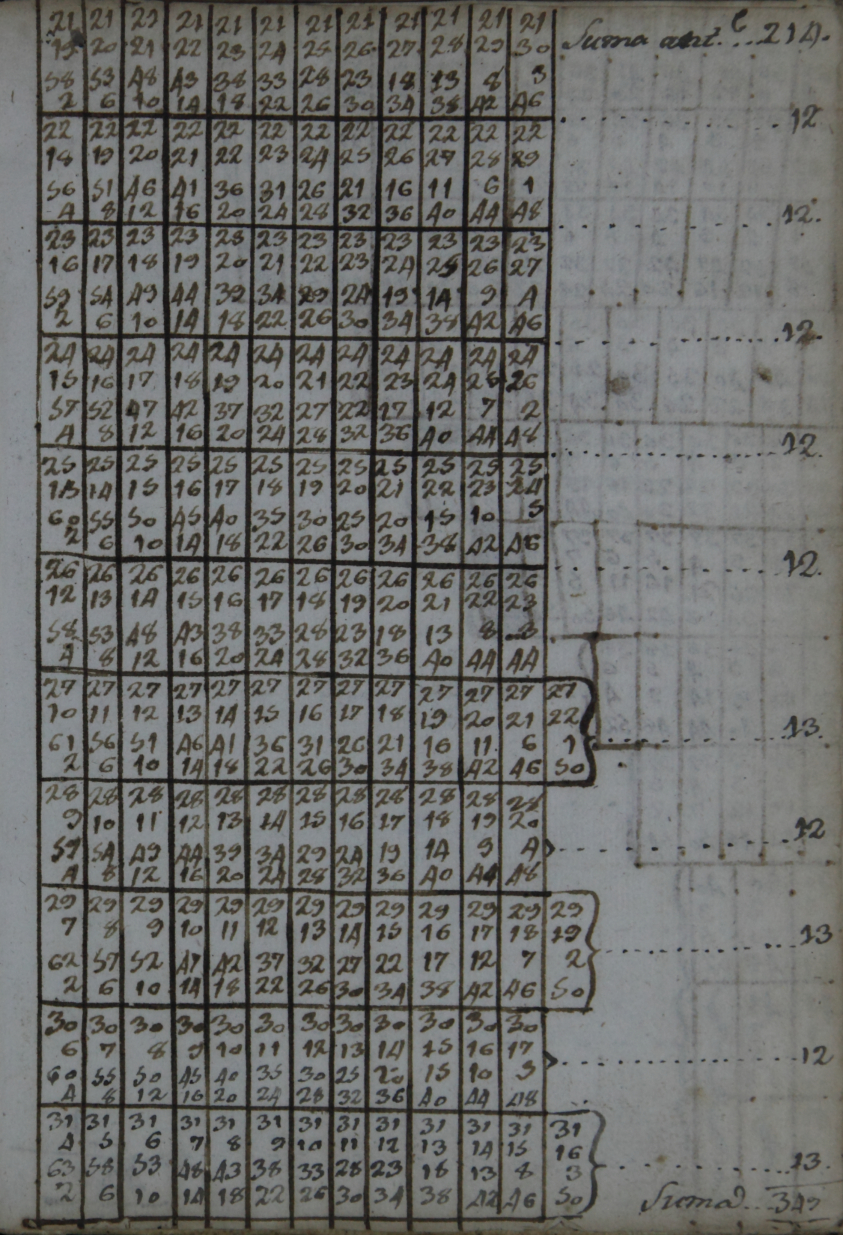 21 21 21 21 21 21 21 21 21 21 21 21
19 20 21 22 23 24 25 26 27 28 29 30 Suma ant.e ... 214.
58 53 48 43 38 33 28 23 18 13 8 3
2 6 10 14 18 22 26 30 34 38 42 46
22 22 22 22 22 22 22 22 22 22 22 22 ........ 12
18 19 20 21 22 23 24 25 26 27 28 29
56 51 46 41 36 31 26 21 16 11 6 1
4 8 12 16 20 24 28 32 36 40 44 48
23 23 23 23 23 23 23 23 23 23 23 23 ........ 12.
16 17 18 19 20 21 22 23 24 25 26 27
59 54 49 44 39 34 29 24 19 14 9 4
2 6 10 14 18 22 26 30 34 38 42 46
24 24 24 24 24 24 24 24 24 24 24 24 ........ 12.
15 16 17 18 19 20 21 22 23 24 25 26
57 52 47 42 37 32 27 22 17 12 7 2
4 8 12 16 20 24 28 32 36 40 44 48
25 25 25 25 25 25 25 25 25 25 25 25 ........ 12
13 14 15 16 17 18 19 20 21 22 23 24
60 55 50 45 40 35 30 25 20 15 10 5
2 6 10 14 18 22 26 30 34 38 42 46
26 26 26 26 26 26 26 26 26 26 26 26 ........ 12.
12 13 14 15 16 17 18 19 20 21 22 23
58 53 48 43 38 33 28 23 18 13 8 3
4 8 12 16 20 24 28 32 36 40 44 44
27 27 27 27 27 27 27 27 27 27 27 27 27
10 11 12 13 14 15 16 17 18 19 20 21 22
61 56 51 46 41 36 31 26 21 16 11 6 1 ........ 13.
2 6 10 14 18 22 26 30 34 38 42 46 50
28 28 28 28 28 28 28 28 28 28 28 28
9 10 11 12 13 14 15 16 17 18 19 20
59 54 49 44 39 34 29 24 19 14 9 4 ........ 12
4 8 12 16 20 24 28 32 36 40 44 48
29 29 29 29 29 29 29 29 29 29 29 29 29
7 8 9 10 11 12 13 14 15 16 17 18 19 ........ 13
62 57 52 47 42 37 32 27 22 17 12 7 2
2 6 10 14 18 22 26 30 34 38 42 46 50
30 30 30 30 30 30 30 30 30 30 30 30
6 7 8 9 10 11 12 13 14 15 16 17 ........ 12
60 55 50 45 40 35 30 25 20 15 10 5
4 8 12 16 20 24 28 32 36 40 44 48
31 31 31 31 31 31 31 31 31 31 31 31 31
4 5 6 7 8 9 10 11 12 13 14 15 16
63 58 53 48 43 38 33 28 23 18 13 8 3 ........ 13.
2 6 10 14 18 22 26 30 34 38 42 46 50 Suma ... 349